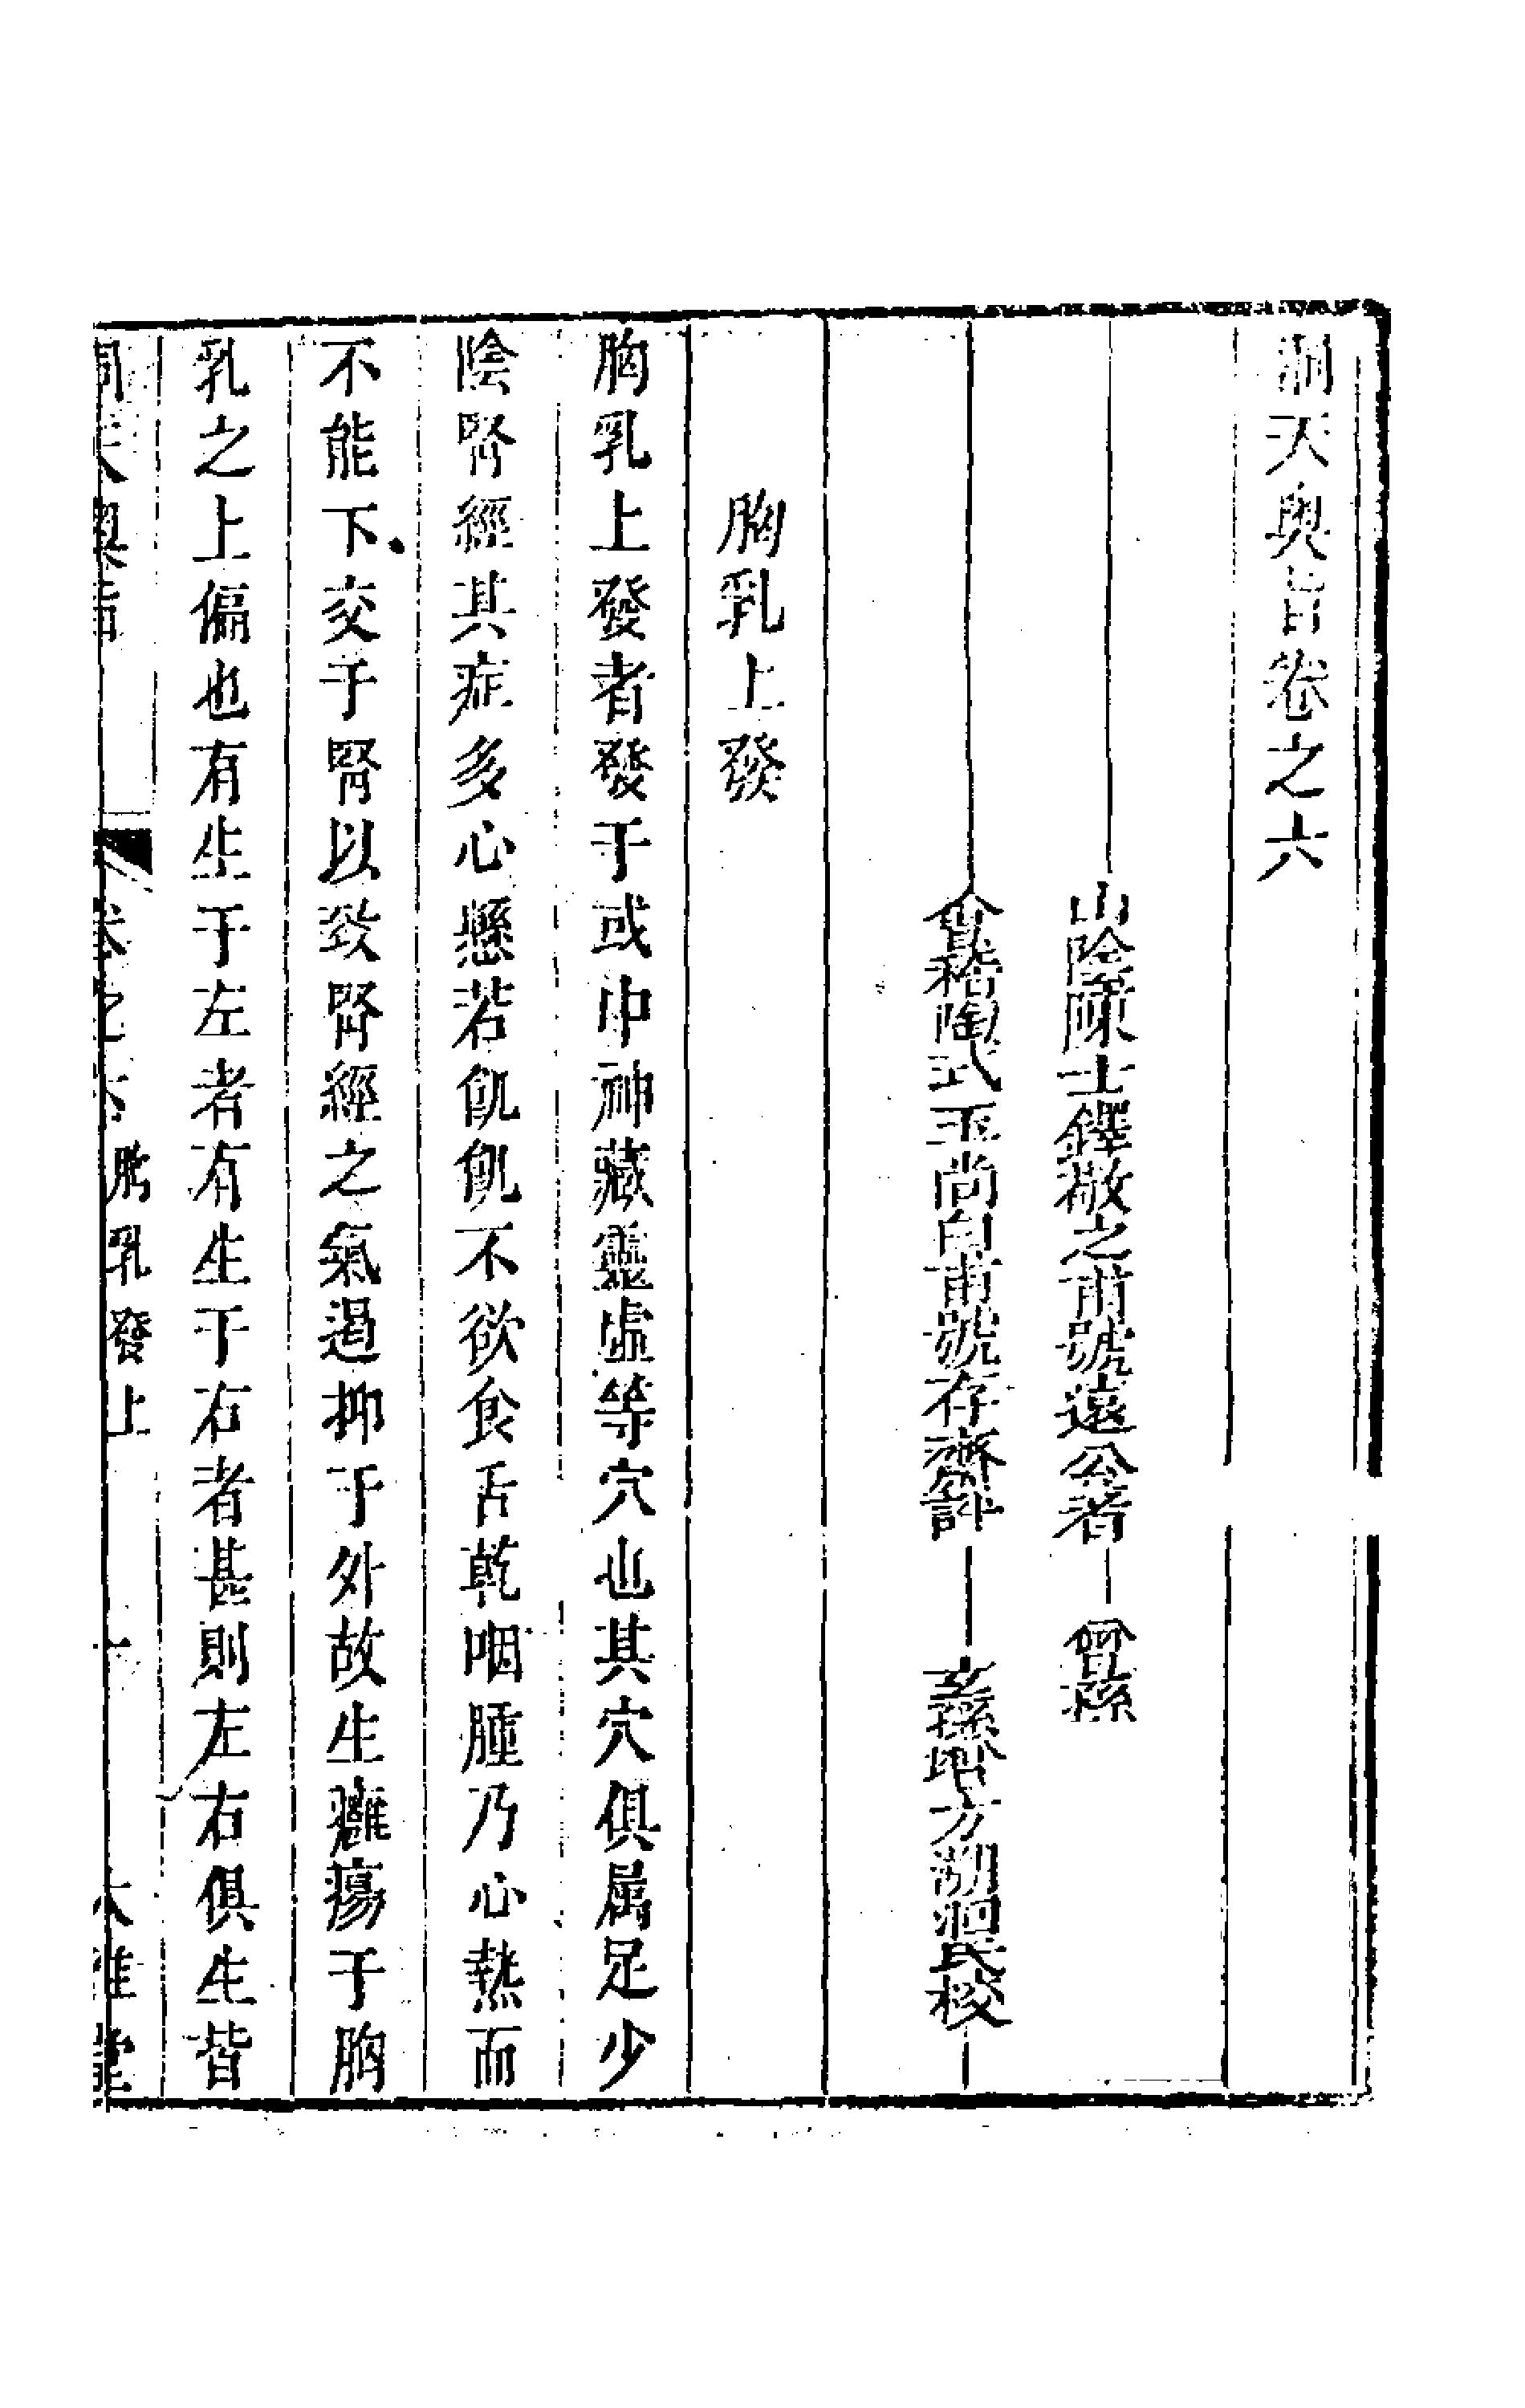 洞天奧旨卷之六
山陰陳士鐸敬之甫號遠公著 曾孫
會稽陶式玉尚白甫號存齋評 玄孫增方湖洄氏校
胸乳上發
胸乳上發者發于或中神藏靈虛等穴也其穴俱屬足少
陰腎經其症多心懸若飢飢不欲食舌乾咽腫乃心熱而
不能下交于腎以致腎經之氣遏抑于外故生癰瘍于胸
乳之上偏也有生于左者有生于右者甚則左右俱生皆
洞天奧旨 卷之六 胸乳發上 一 大雅堂